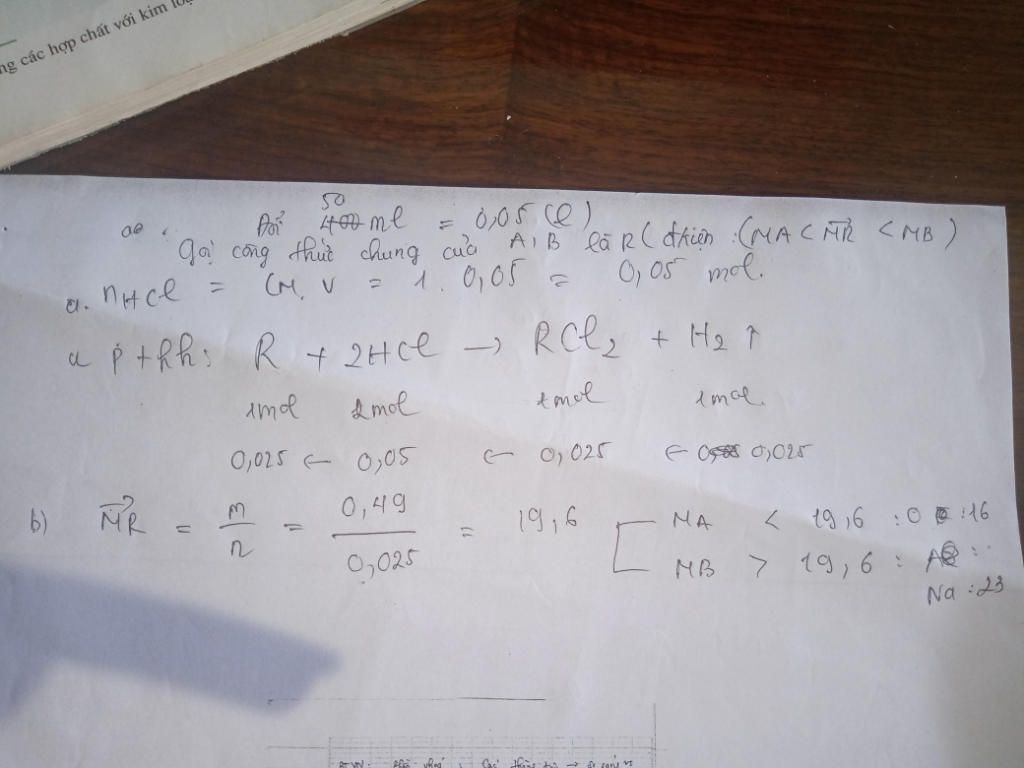 ng các hợp chất với kim loạ
Đổi 50 ml = 0,05 (l)
Gọi công thức chung của A, B là R ( đkiện : (MA < MR < MB )
a. nHCl = CM. V = 1. 0,05 = 0,05 mol.
R + 2HCl → RCl2 + H2 ↑
1mol 2mol 1mol 1mol.
0,025 ← 0,05 ← 0,025 ← 0,025
b) MR = m/n = 0,49/0,025 = 19,6
MA < 19,6 : O :16
MB > 19,6 :
Na :23